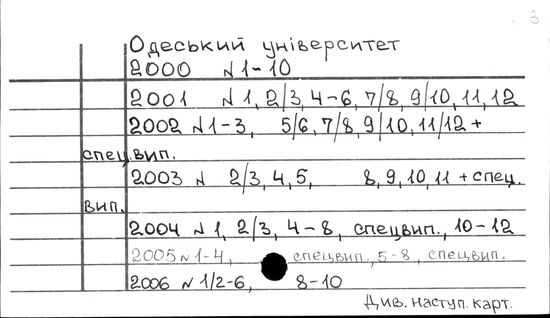 3
Одеський університет
2000 N 1-10
2001 N 1, 2/3, 4-6, 7/8, 9/10, 11, 12
2002 N 1-3, 5/6, 7/8, 9/10, 11/12 +
спец.вип.
2003 N 2/3, 4, 5, 8, 9, 10, 11 + спец.
вип.
2004 N 1, 2/3, 4-8, спецвип., 10-12
2005 N 1-4, спецвип., 5-8, спецвип.
2006 N 1/2-6, 8-10
Див. наступ. карт.